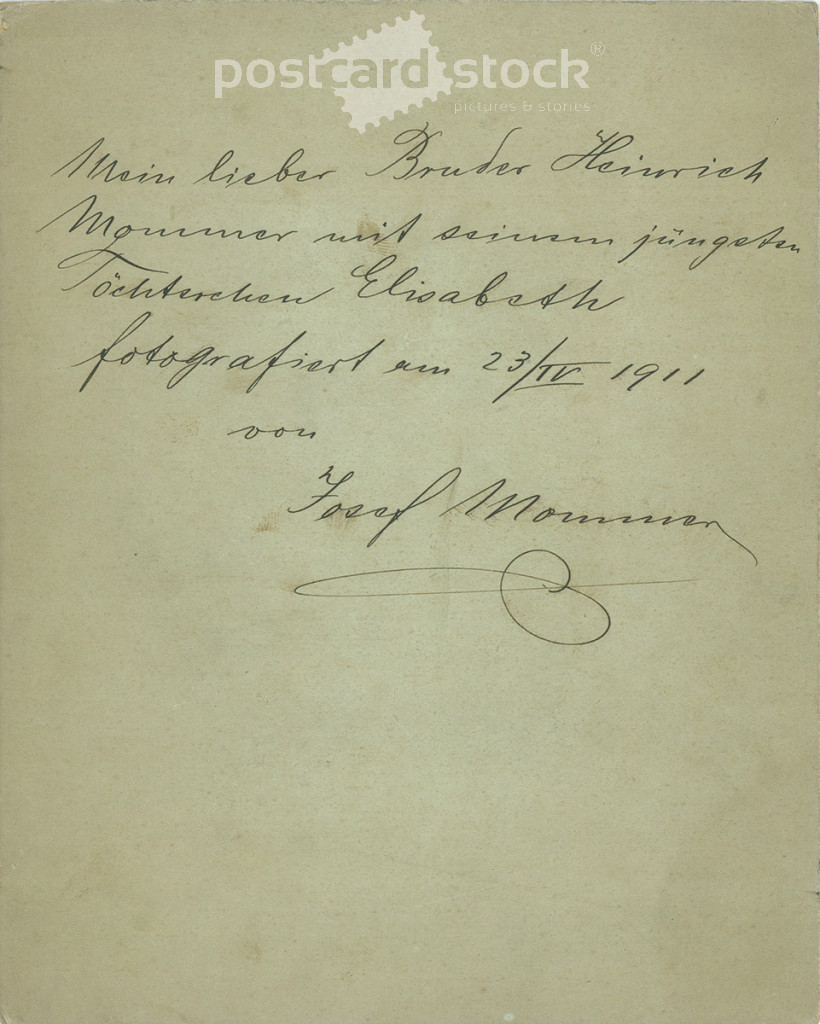 postcard stock®
pictures & stories
Mein lieber Bruder Heinrich
Mommer mit seinem jüngsten
Töchterchen Elisabeth
fotografiert am 23/IV 1911
von
Josef Mommer